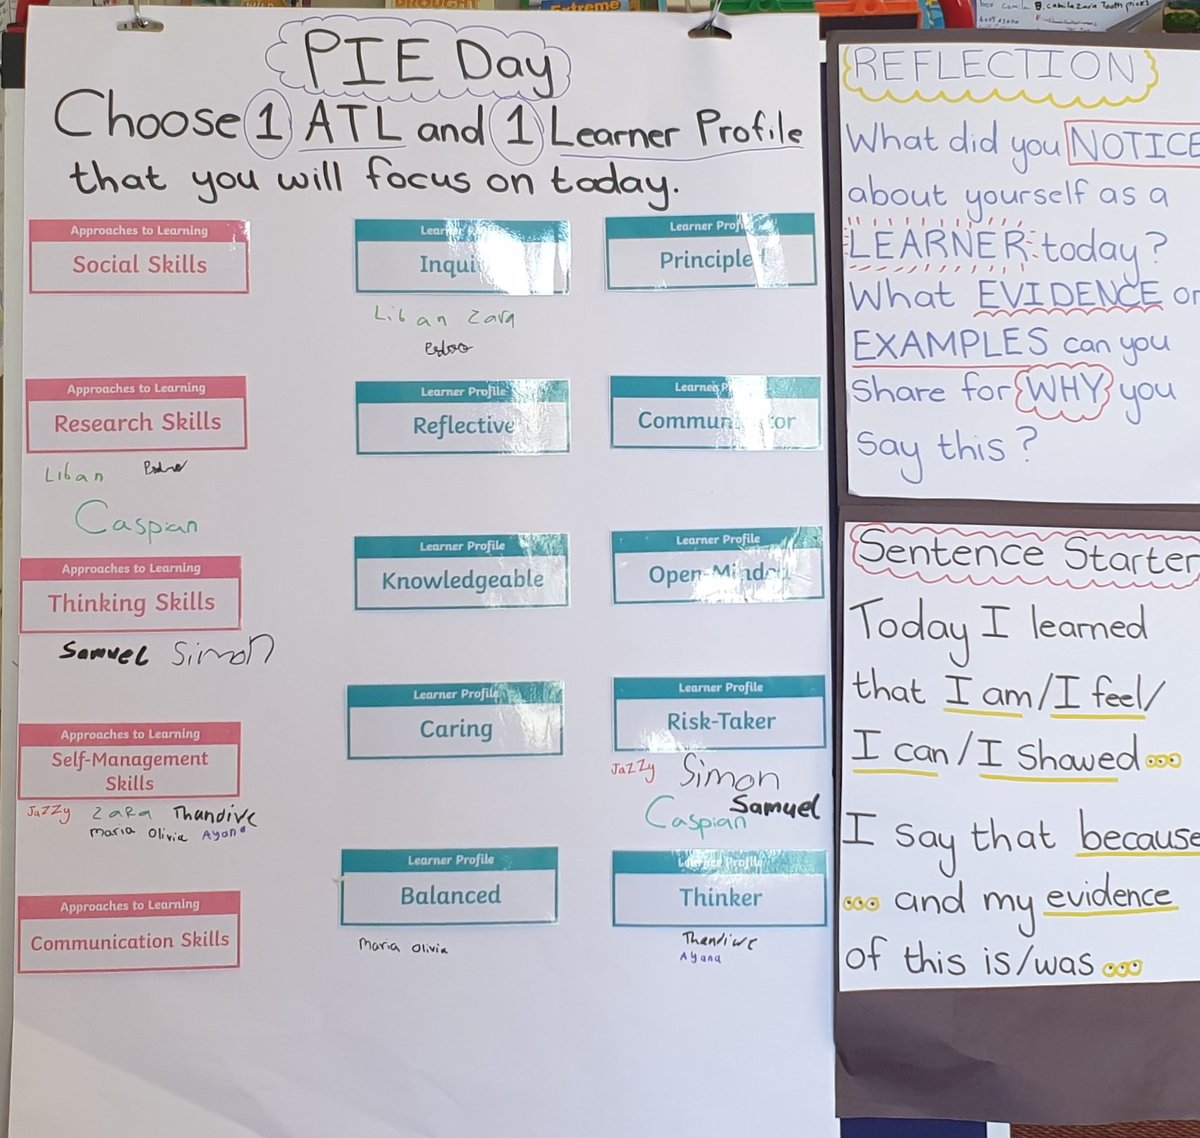 DROUGHT
Extreme
PIE Day
Choose 1 ATL and 1 Learner Profile
that you will focus on today.
Approaches to Learning
Social Skills
Approaches to Learning
Research Skills
Liban
Caspian
Approaches to Learning
Thinking Skills
Samuel Simon
Approaches to Learning
Self-Management
Skills
JaZZy ZaRa Thandive
maria Olivia Ayana
Approaches to Learning
Communication Skills
Learner Profile
Liban Zara
Learner Profile
Reflective
Learner Profile
Knowledgeable
Learner Profile
Caring
Learner Profile
Balanced
maria Olivia
Learner Profile
Principled
Learner Profile
Communicator
Learner Profile
Open-Minded
Learner Profile
Risk-Taker
JaZZy Simon
Caspian Samuel
Learner Profile
Thinker
Thandive
Ayana
REFLECTION
What did you NOTICE
about yourself as a
LEARNER today?
What EVIDENCE or
EXAMPLES can you
share for WHY you
say this?
Sentence Starter
Today I learned
that I am/I feel/
I can/I showed...
I say that because
... and my evidence
of this is/was...